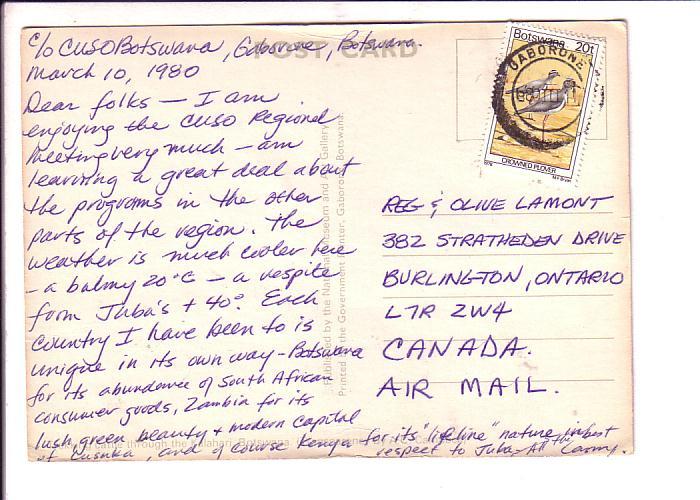 c/o CUSO Botswana, Gaborone, Botswana.
March 10, 1980
POST CARD
Dear folks — I am
enjoying the CUSO Regional
Meeting very much — am
learning a great deal about
the programs in the other
parts of the region. The
weather is much cooler here
- a balmy 20°C - a respite
from Juba's + 40°. Each
country I have been to is
unique in its own way - Botswana
for its abundance of South African
consumer goods, Zambia for its
lush, green beauty + modern capital
of Lusaka and of course Kenya for its "lifeline" nature in
respect to Juba - All the best
Published by the National Museum and Art Gallery
Printed by the Government Printer, Gaborone, Botswana.
through the Kalahari, Botswana.
Botswana 20t
GABORONE
CROWNED PLOVER
REG & OLIVE LAMONT
382 STRATHEDEN DRIVE
BURLINGTON, ONTARIO
L7R 2W4
CANADA.
AIR MAIL.